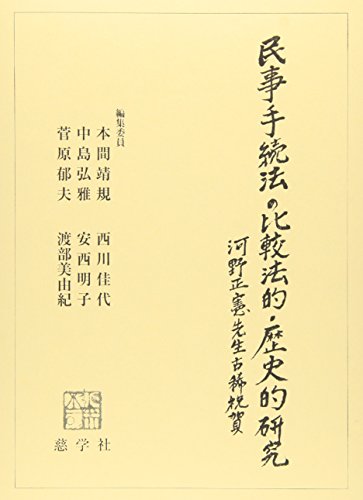 民事手続法の比較法的・歴史的研究
河野正憲先生古稀祝賀
編集委員
本間靖規　西川佳代
中島弘雅　安西明子
菅原郁夫　渡部美由紀
慈学社